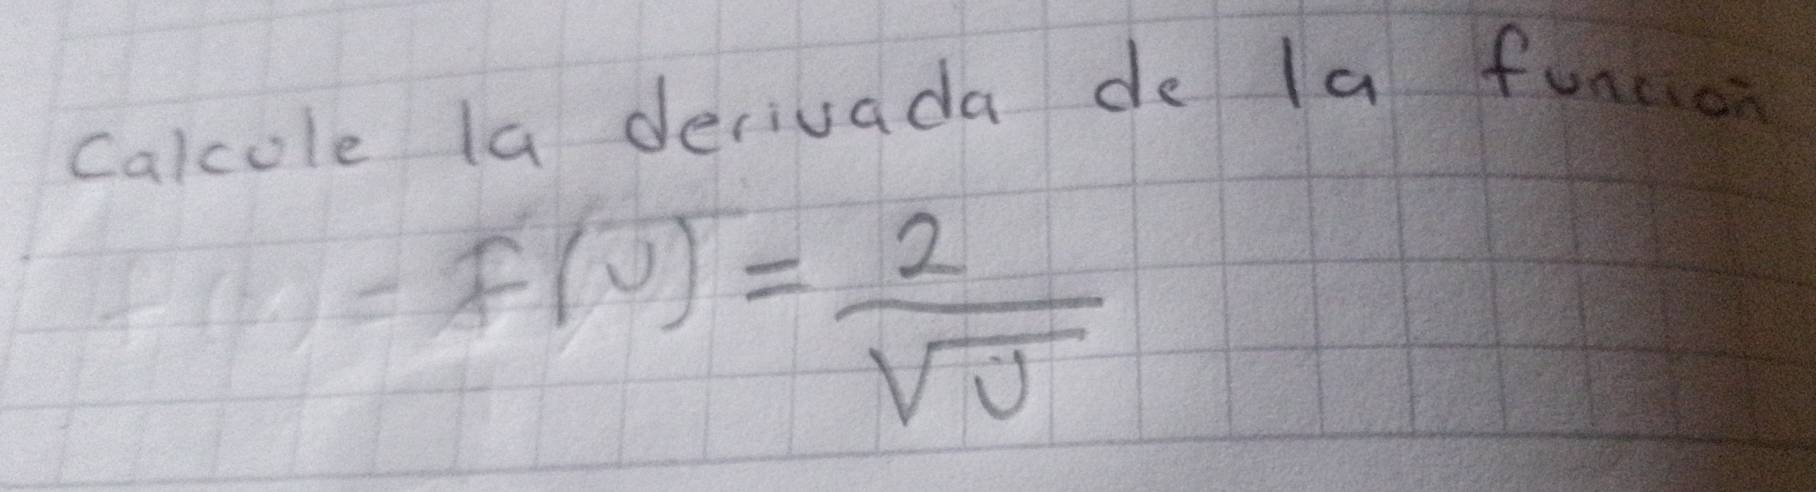 calcule la derivada de la función
F(U) = 2/√U